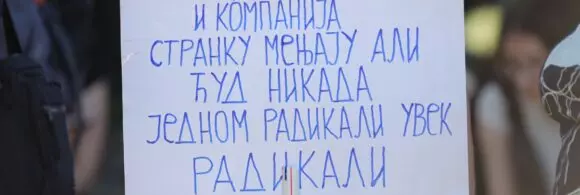 И КОМПАНИЈА
СТРАНКУ МЕЊАЈУ АЛИ
ЋУД НИКАДА
ЈЕДНОМ РАДИКАЛИ УВЕК
РАДИКАЛИ